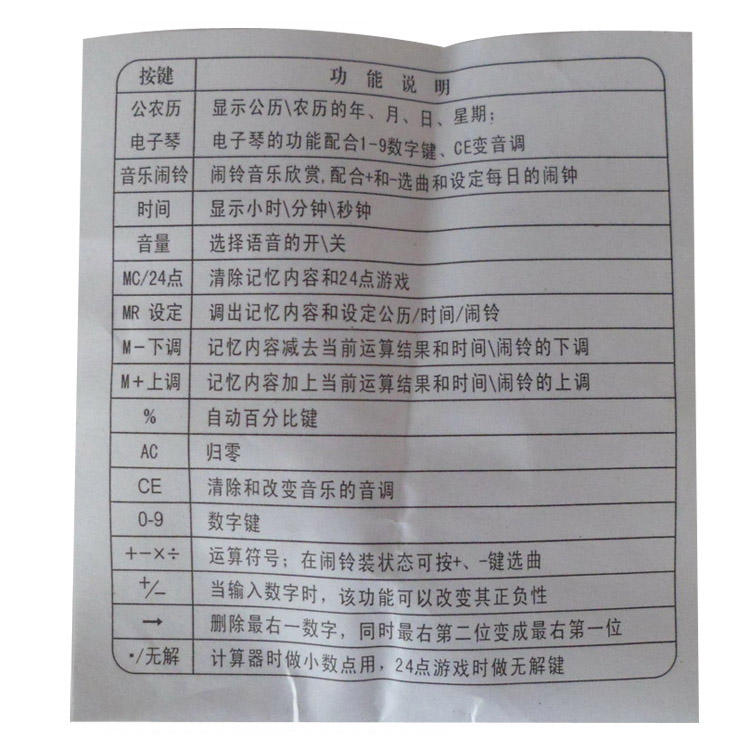 按键 功能说明
公农历 显示公历\农历的年、月、日、星期；
电子琴 电子琴的功能配合1-9数字键、CE变音调
音乐闹铃 闹铃音乐欣赏,配合+和-选曲和设定每日的闹钟
时间 显示小时\分钟\秒钟
音量 选择语音的开\关
MC/24点 清除记忆内容和24点游戏
MR 设定 调出记忆内容和设定公历/时间/闹铃
M-下调 记忆内容减去当前运算结果和时间\闹铃的下调
M+上调 记忆内容加上当前运算结果和时间\闹铃的上调
% 自动百分比键
AC 归零
CE 清除和改变音乐的音调
0-9 数字键
+-×÷ 运算符号；在闹铃装状态可按+、-键选曲
+/- 当输入数字时，该功能可以改变其正负性
→ 删除最右一数字，同时最右第二位变成最右第一位
·/无解 计算器时做小数点用，24点游戏时做无解键